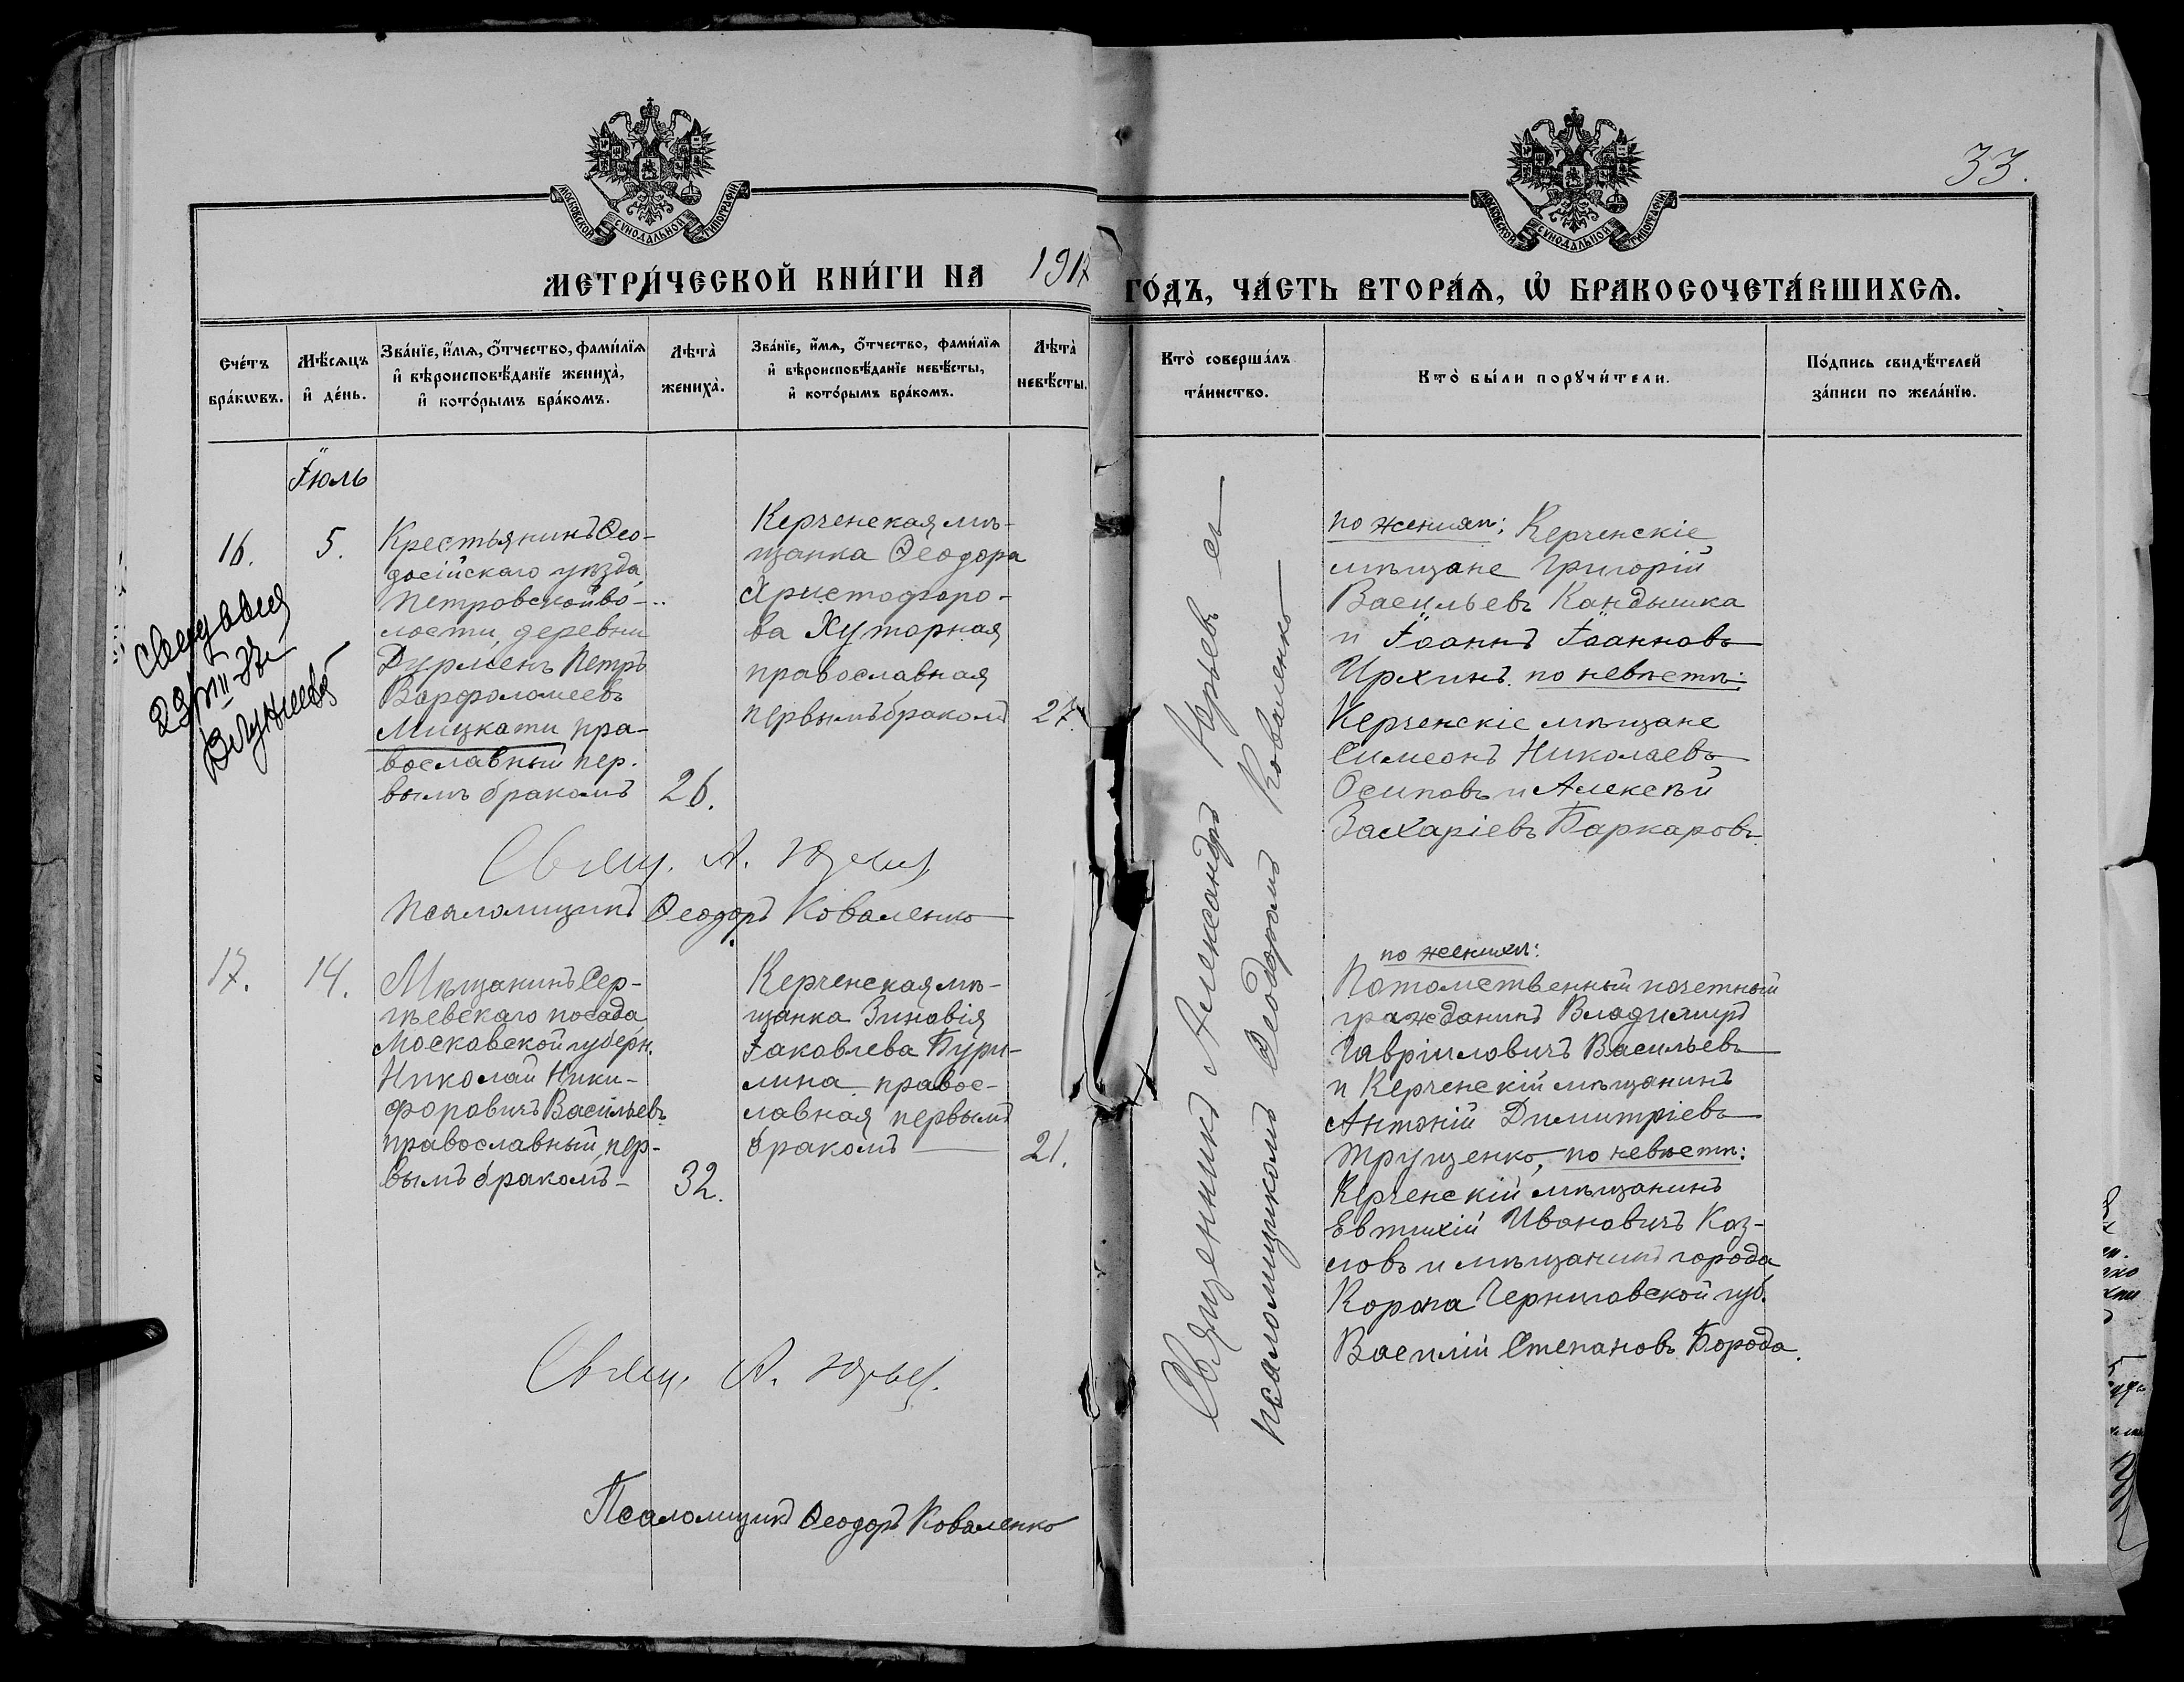 33.
МОСКОВСКОЙ СѴНОДАЛЬНОЙ ТИПОГРАФІИ
МОСКОВСКОЙ СѴНОДАЛЬНОЙ ТИПОГРАФІИ
МЕТРИ́ЧЕСКОЙ КНИ́ГИ НА 1917 ГО́ДЪ, ЧА́СТЬ ВТОРА́Ѧ, Ѡ҆ БРАКОСОЧЕТА́ВШИХСѦ.
Сче́тъ
бра́кѡвъ.
Мѣ́сѧцъ
и҆ де́нь.
Зва́нїе, и҆́мѧ, ѻ҆́тчество, фами́лїѧ
и҆ вѣроисповѣ́данїе жениха̀,
и҆ кото́рымъ бра́комъ.
Лѣта̀
жениха̀.
Зва́нїе, и҆́мѧ, ѻ҆́тчество, фами́лїѧ
и҆ вѣроисповѣ́данїе невѣ́сты,
и҆ кото́рымъ бра́комъ.
Лѣта̀
невѣ́сты.
Кто̀ соверша́лъ
та́инство.
Кто̀ бы́ли порꙋчи́тели.
По́дпись свидѣ́телей
за́писи по жела́нїю.
Іюль
16.
5.
Крестьянинъ Ѳео-
досійскаго уѣзда,
Петровской во-
лости, деревни
Дурменъ Петръ
Варфоломеевъ
Мицкати пра-
вославный пер-
вымъ бракомъ
26.
Керченская мѣ-
щанка Ѳеодора
Христофоро-
ва Хуторная
православная
первымъ бракомъ
27.
по женихѣ: Керченскіе
мѣщане Григорій
Васильевъ Кандышка
и Іоаннъ Іоанновъ
Ирхинъ. по невѣстѣ:
Керченскіе мѣщане
Симеонъ Николаевъ
Осиповъ и Алексѣй
Захаріевъ Баркаровъ.
29/VIII-37г
Свящ. А. Юрьев
Псаломщикъ Ѳеодоръ Коваленко
17.
14.
Мѣщанинъ Сер-
гіевскаго посада
Московской губерн.
Николай Ники-
форовичъ Васильевъ
православный, пер-
вымъ бракомъ
32.
Керченская мѣ-
щанка Зиновія
Іаковлева Бури-
лина правос-
лавная первымъ
бракомъ
21.
по женихѣ:
Потомственный почетный
гражданинъ Владимиръ
Гавріиловичъ Васильевъ
и Керченскій мѣщанинъ
Антоній Димитріевъ
Трущенко, по невѣстѣ:
Керченскій мѣщанинъ
Евтихій Ивановичъ Коз-
ловъ и мѣщанинъ города
Коропа Черниговской губ.
Василій Степановъ Борода.
Священникъ Александръ Юрьевъ съ
псаломщикомъ Ѳеодоромъ Коваленко
Свящ. А. Юрьев.
Псаломщикъ Ѳеодоръ Коваленко